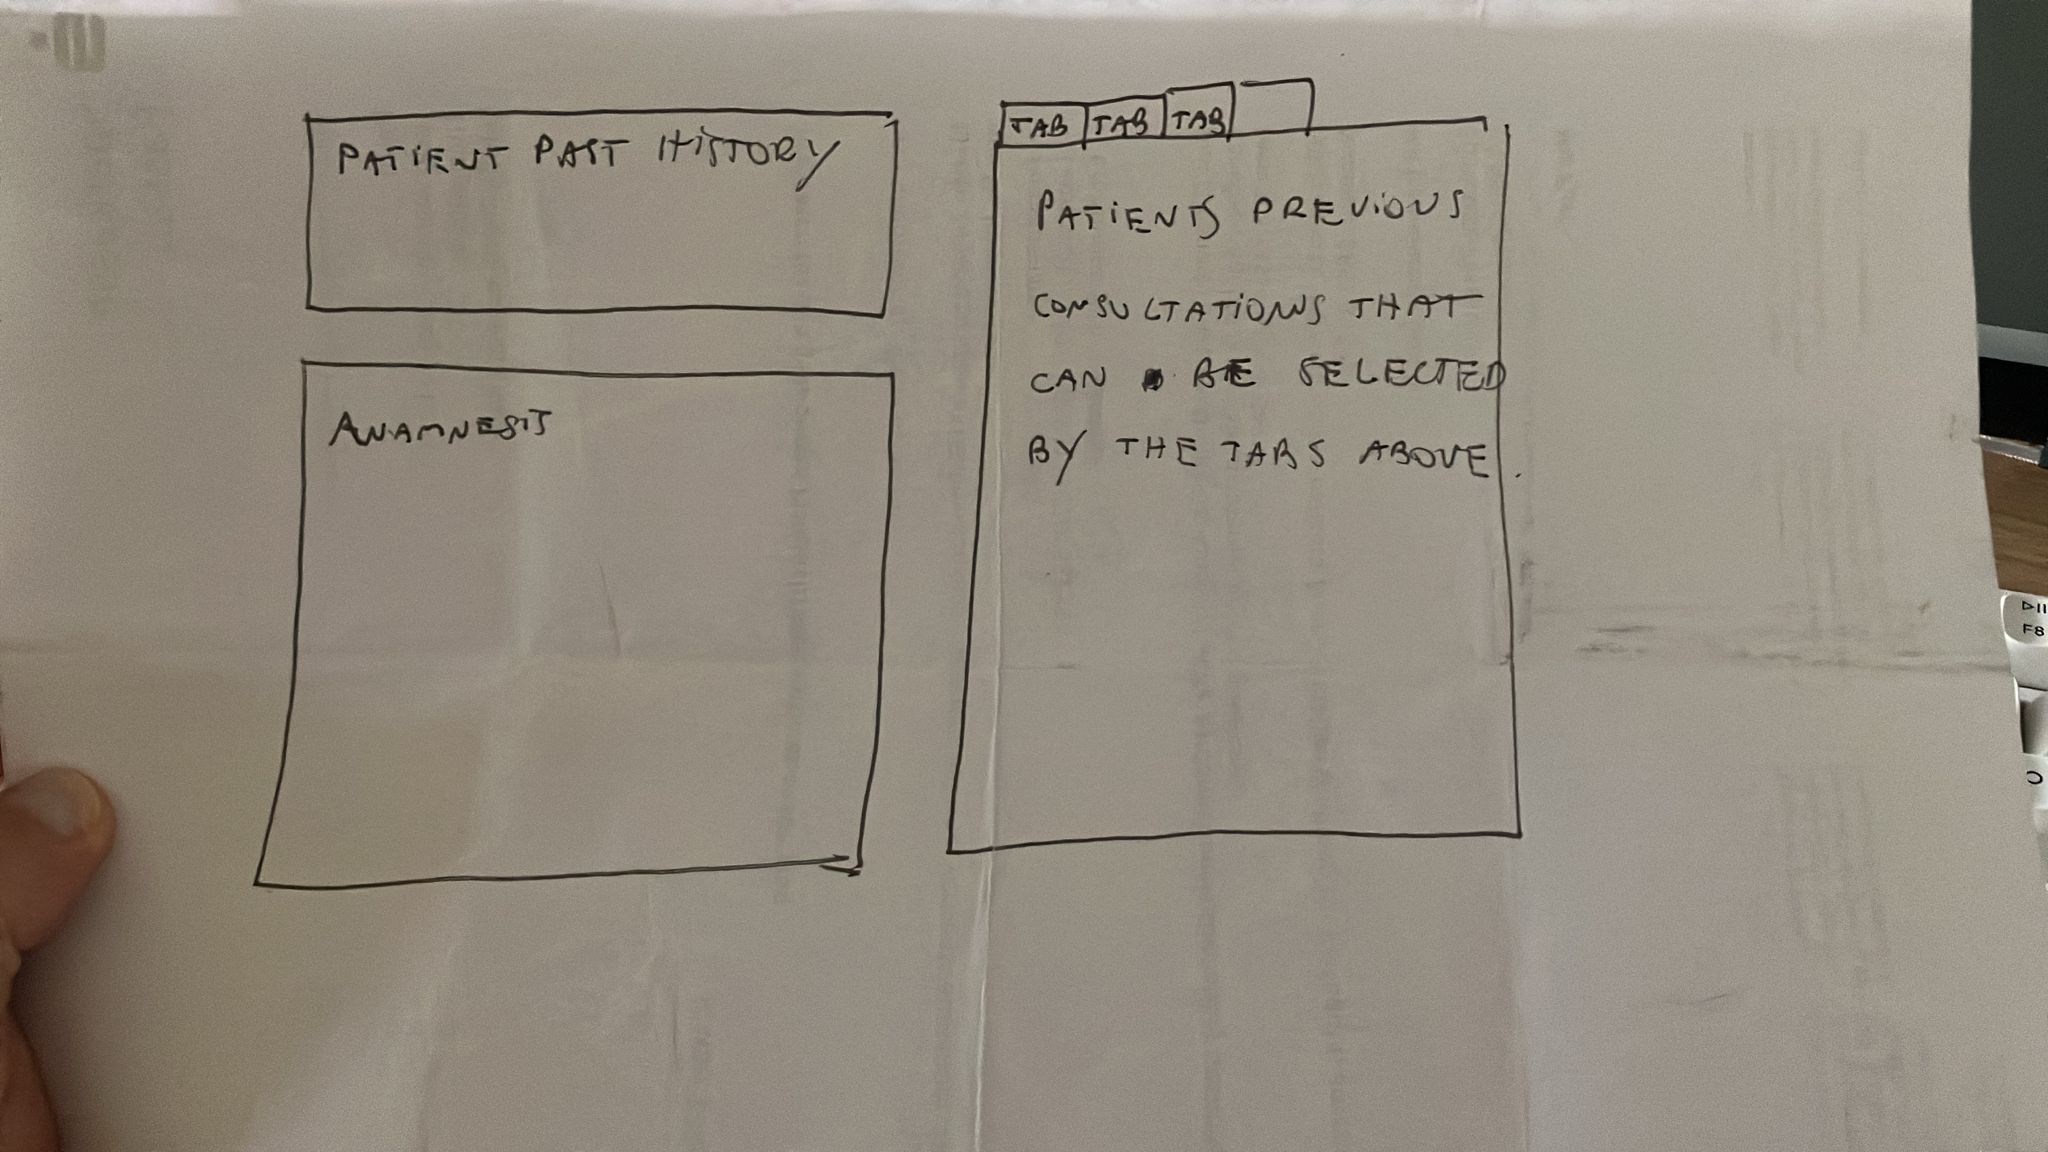 PATIENT PAST HISTORY
ANAMNESIS
TAB TAB TAB
PATIENTS PREVIOUS
CONSULTATIONS THAT
CAN BE SELECTED
BY THE TABS ABOVE.
F8